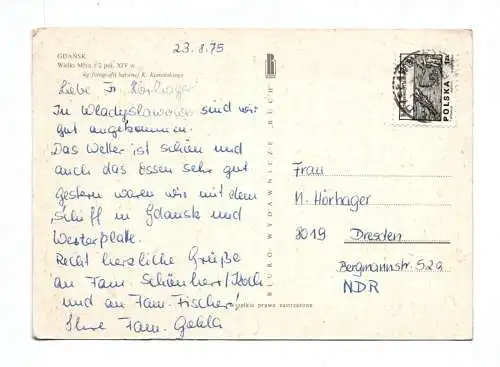 23.8.75
GDAŃSK
Wielki Młyn z 2 poł. XIV w.
wg fotografii barwnej K. Kamińskiego
Liebe Fr. Hörhager
In Władysławowo sind wir
gut angekommen.
Das Wetter ist schön und
auch das Essen sehr gut
Gestern waren wir mit dem
Schiff in Gdansk und
Westerplatte.
Recht herzliche Grüße
an Fam. Schönherr/Koch
und an Fam. Fischer!
Ihre Fam. Gabla
BIURO WYDAWNICZE RUCH
Wszelkie prawa zastrzeżone
POLSKA
Frau
M. Hörhager
8019 Dresden
Bergmannstr. 52a
NDR